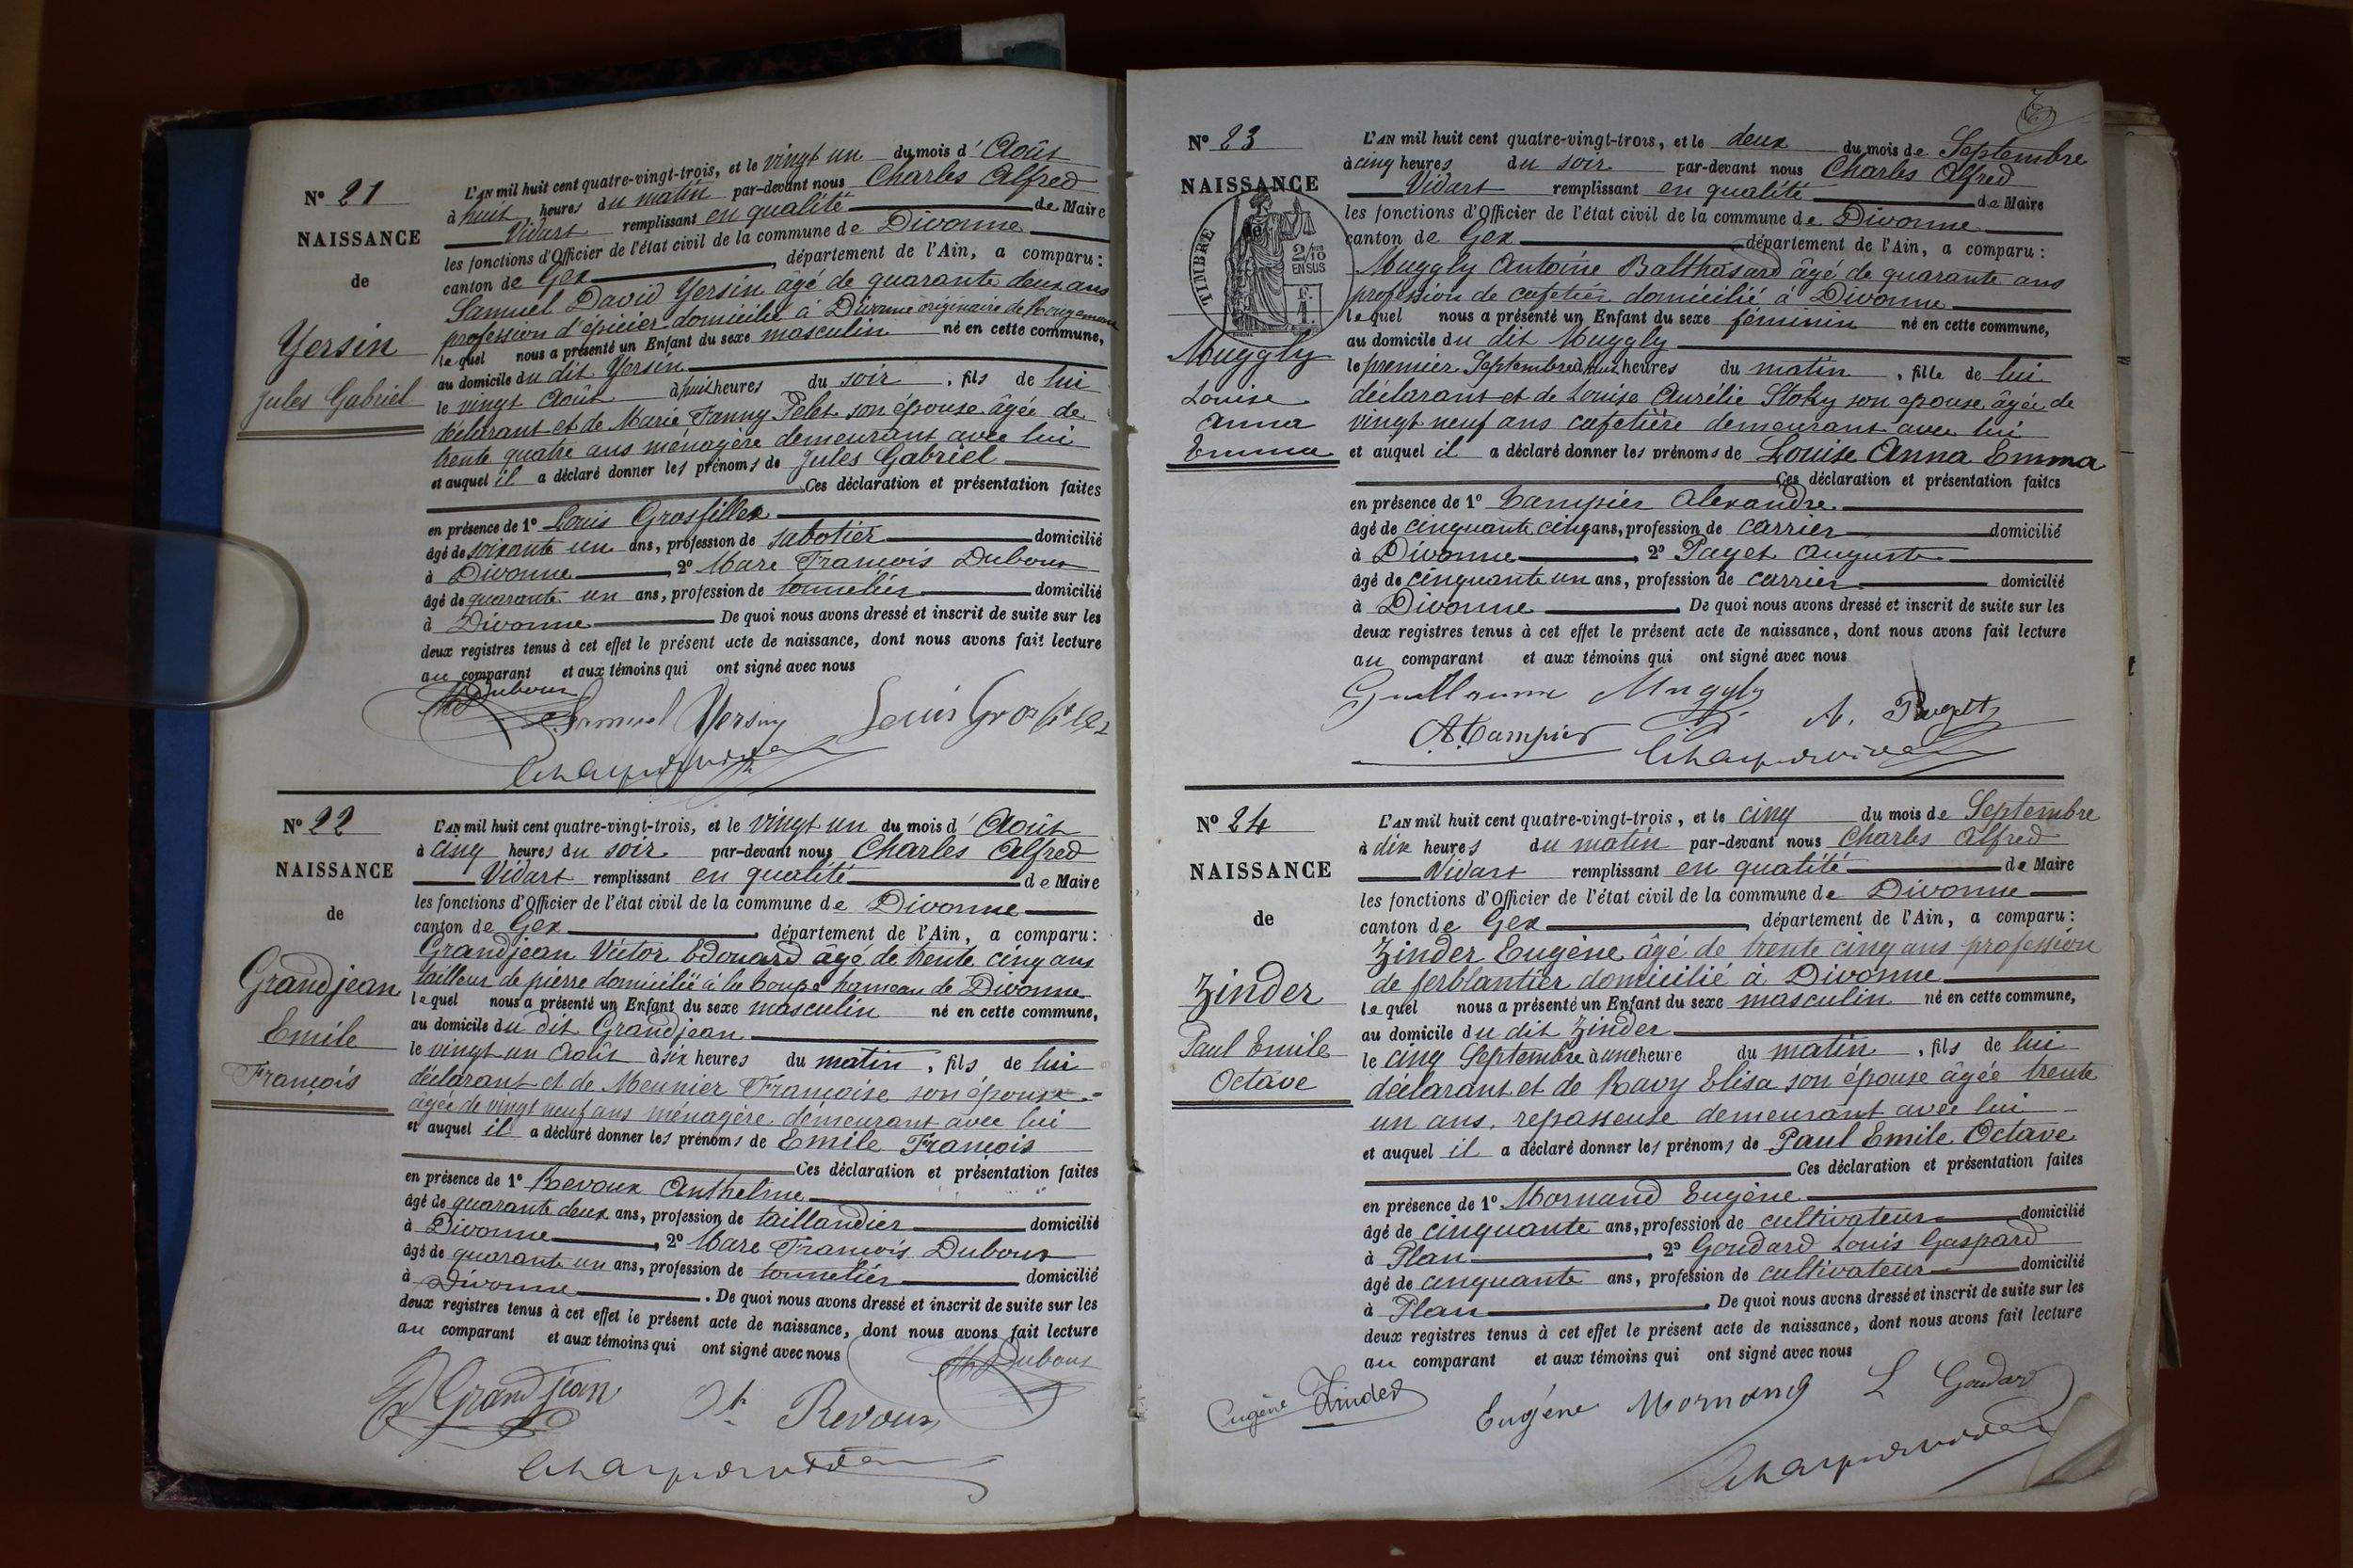 N° 21
NAISSANCE
de
Yersin
Jules Gabriel
L'AN mil huit cent quatre-vingt-trois, et le vingt un du mois d'Août
à huit heures du matin par-devant nous Charles Alfred
Vidart remplissant en qualité de Maire
les fonctions d'Officier de l'état civil de la commune de Divonne
canton de Gex, département de l'Ain, a comparu :
Samuel David Yersin âgé de quarante deux ans
profession d'épicier domicilié à Divonne originaire de Rougemont
lequel nous a présenté un Enfant du sexe masculin né en cette commune,
au domicile du dit Yersin
le vingt Août à huit heures du soir, fils de lui
déclarant et de Marie Fanny Pelet son épouse âgée de
trente quatre ans ménagère demeurant avec lui
et auquel il a déclaré donner les prénoms de Jules Gabriel
Ces déclaration et présentation faites
en présence de 1° Louis Grosfillex
âgé de soixante un ans, profession de sabotier domicilié
à Divonne, 2° Marc François Dubout
âgé de quarante un ans, profession de tonnelier domicilié
à Divonne De quoi nous avons dressé et inscrit de suite sur les
deux registres tenus à cet effet le présent acte de naissance, dont nous avons fait lecture
au comparant et aux témoins qui ont signé avec nous
Dubout
Samuel Yersin Louis Grosfillex
N° 22
NAISSANCE
de
Grandjean
Emile
François
L'AN mil huit cent quatre-vingt-trois, et le vingt un du mois d'Août
à cinq heures du soir par-devant nous Charles Alfred
Vidart remplissant en qualité de Maire
les fonctions d'Officier de l'état civil de la commune de Divonne
canton de Gex, département de l'Ain, a comparu :
Grandjean Victor Edouard âgé de trente cinq ans
tailleur de pierre domicilié à la Coupe hameau de Divonne
lequel nous a présenté un Enfant du sexe masculin né en cette commune,
au domicile du dit Grandjean
le vingt un Août à six heures du matin, fils de lui
déclarant et de Meunier Françoise son épouse
âgée de vingt neuf ans ménagère demeurant avec lui
et auquel il a déclaré donner les prénoms de Emile François
Ces déclaration et présentation faites
en présence de 1° Revoux Anthelme
âgé de quarante deux ans, profession de taillandier domicilié
à Divonne, 2° Marc François Dubout
âgé de quarante un ans, profession de tonnelier domicilié
à Divonne. De quoi nous avons dressé et inscrit de suite sur les
deux registres tenus à cet effet le présent acte de naissance, dont nous avons fait lecture
au comparant et aux témoins qui ont signé avec nous
Dubout
Grandjean Revoux
N° 23
NAISSANCE
de
TIMBRE
2/10
EN SUS
F.
1.
Muggly
Louise
Anna
Emma
L'AN mil huit cent quatre-vingt-trois, et le deux du mois de Septembre
à cinq heures du soir par-devant nous Charles Alfred
Vidart remplissant en qualité de Maire
les fonctions d'Officier de l'état civil de la commune de Divonne
canton de Gex département de l'Ain, a comparu :
Muggly Antoine Balthasard âgé de quarante ans
profession de cafetier domicilié à Divonne
lequel nous a présenté un Enfant du sexe féminin né en cette commune,
au domicile du dit Muggly
le premier Septembre à huit heures du matin, fille de lui
déclarant et de Louise Aurélie Stoky son épouse âgée de
vingt neuf ans cafetière demeurant avec lui
et auquel il a déclaré donner les prénoms de Louise Anna Emma
Ces déclaration et présentation faites
en présence de 1° Campier Alexandre
âgé de cinquante cinq ans, profession de carrier domicilié
à Divonne, 2° Paget Auguste
âgé de cinquante un ans, profession de carrier domicilié
à Divonne. De quoi nous avons dressé et inscrit de suite sur les
deux registres tenus à cet effet le présent acte de naissance, dont nous avons fait lecture
au comparant et aux témoins qui ont signé avec nous
Guillaume Muggly
A Campier A. Paget
N° 24
NAISSANCE
de
Zinder
Paul Emile
Octave
L'AN mil huit cent quatre-vingt-trois, et le cinq du mois de Septembre
à dix heures du matin par-devant nous Charles Alfred
Vidart remplissant en qualité de Maire
les fonctions d'Officier de l'état civil de la commune de Divonne
canton de Gex, département de l'Ain, a comparu :
Zinder Eugène âgé de trente cinq ans profession
de ferblantier domicilié à Divonne
lequel nous a présenté un Enfant du sexe masculin né en cette commune,
au domicile du dit Zinder
le cinq Septembre à une heure du matin, fils de lui
déclarant et de Ravy Elisa son épouse âgée trente
un ans, repasseuse demeurant avec lui
et auquel il a déclaré donner les prénoms de Paul Emile Octave
Ces déclaration et présentation faites
en présence de 1° Mornand Eugène
âgé de cinquante ans, profession de cultivateur domicilié
à Plan, 2° Goudard Louis Gaspard
âgé de cinquante ans, profession de cultivateur domicilié
à Plan. De quoi nous avons dressé et inscrit de suite sur les
deux registres tenus à cet effet le présent acte de naissance, dont nous avons fait lecture
au comparant et aux témoins qui ont signé avec nous
Eugène Zinder Eugène Mornand L Goudard